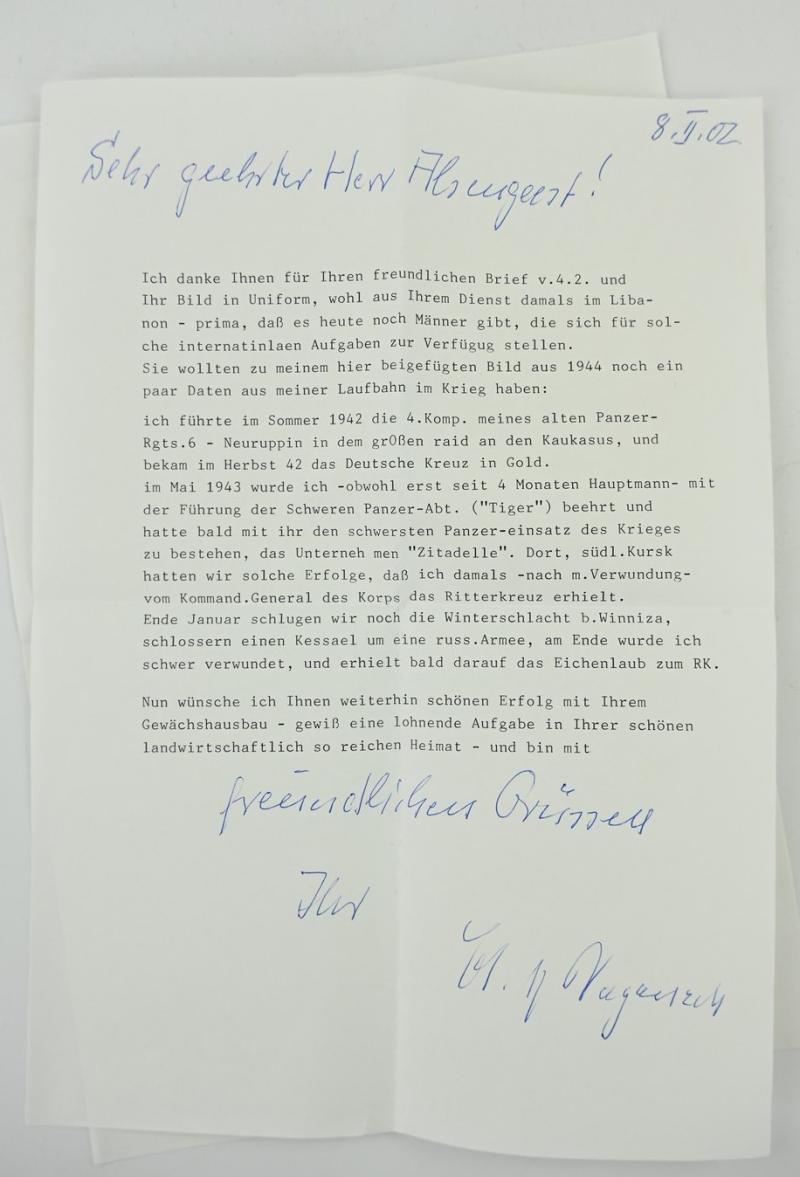 8.II.02
Sehr geehrter Herr
Ich danke Ihnen für Ihren freundlichen Brief v.4.2. und
Ihr Bild in Uniform, wohl aus Ihrem Dienst damals im Liba-
non - prima, daß es heute noch Männer gibt, die sich für sol-
che internatinlaen Aufgaben zur Verfügug stellen.
Sie wollten zu meinem hier beigefügten Bild aus 1944 noch ein
paar Daten aus meiner Laufbahn im Krieg haben:
ich führte im Sommer 1942 die 4.Komp. meines alten Panzer-
Rgts.6 - Neuruppin in dem gr0ßen raid an den Kaukasus, und
bekam im Herbst 42 das Deutsche Kreuz in Gold.
im Mai 1943 wurde ich -obwohl erst seit 4 Monaten Hauptmann- mit
der Führung der Schweren Panzer-Abt. ("Tiger") beehrt und
hatte bald mit ihr den schwersten Panzer-einsatz des Krieges
zu bestehen, das Unterneh men "Zitadelle". Dort, südl.Kursk
hatten wir solche Erfolge, daß ich damals -nach m.Verwundung-
vom Kommand.General des Korps das Ritterkreuz erhielt.
Ende Januar schlugen wir noch die Winterschlacht b.Winniza,
schlossern einen Kessael um eine russ.Armee, am Ende wurde ich
schwer verwundet, und erhielt bald darauf das Eichenlaub zum RK.
Nun wünsche ich Ihnen weiterhin schönen Erfolg mit Ihrem
Gewächshausbau - gewiß eine lohnende Aufgabe in Ihrer schönen
landwirtschaftlich so reichen Heimat - und bin mit
freundlichen Grüssen
Ihr